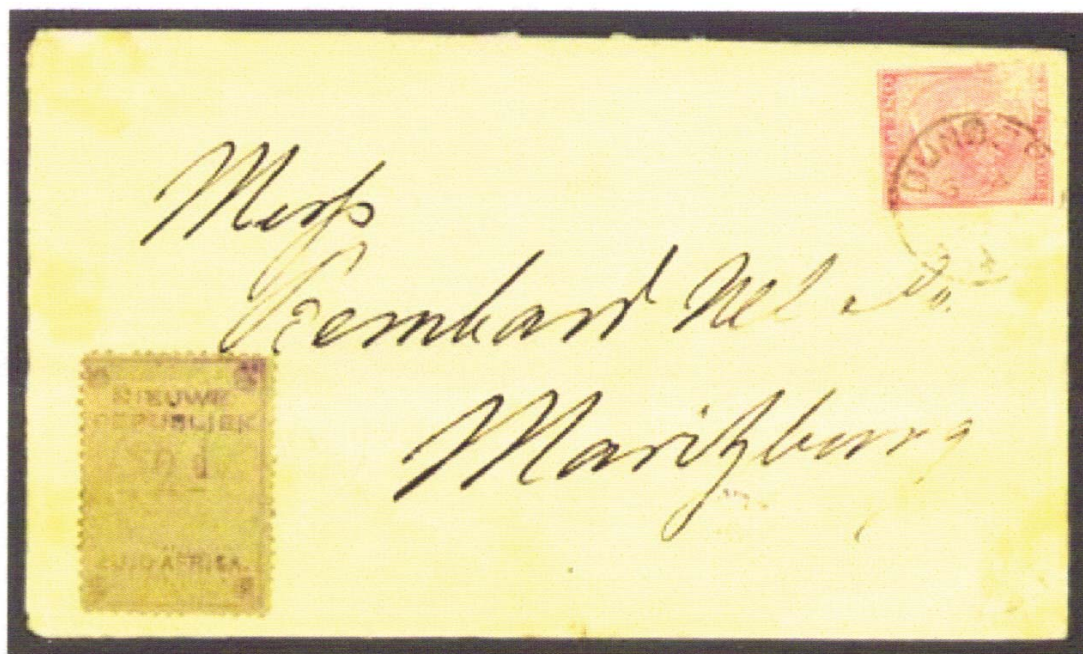 DUNDEE
Messrs
Bernhard Nel & Co.
Maritzburg
NIEUWE
REPUBLIEK
ZUID AFRIKA.